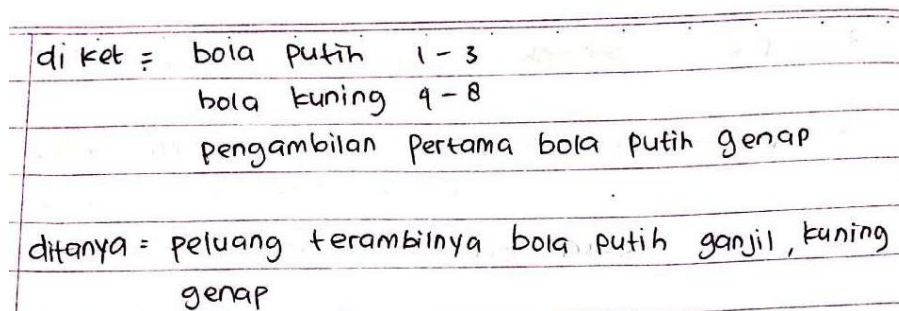 di ket = bola putih 1 - 3
bola kuning 4 - 8
pengambilan pertama bola putih genap
ditanya = peluang terambilnya bola putih ganjil, kuning
genap